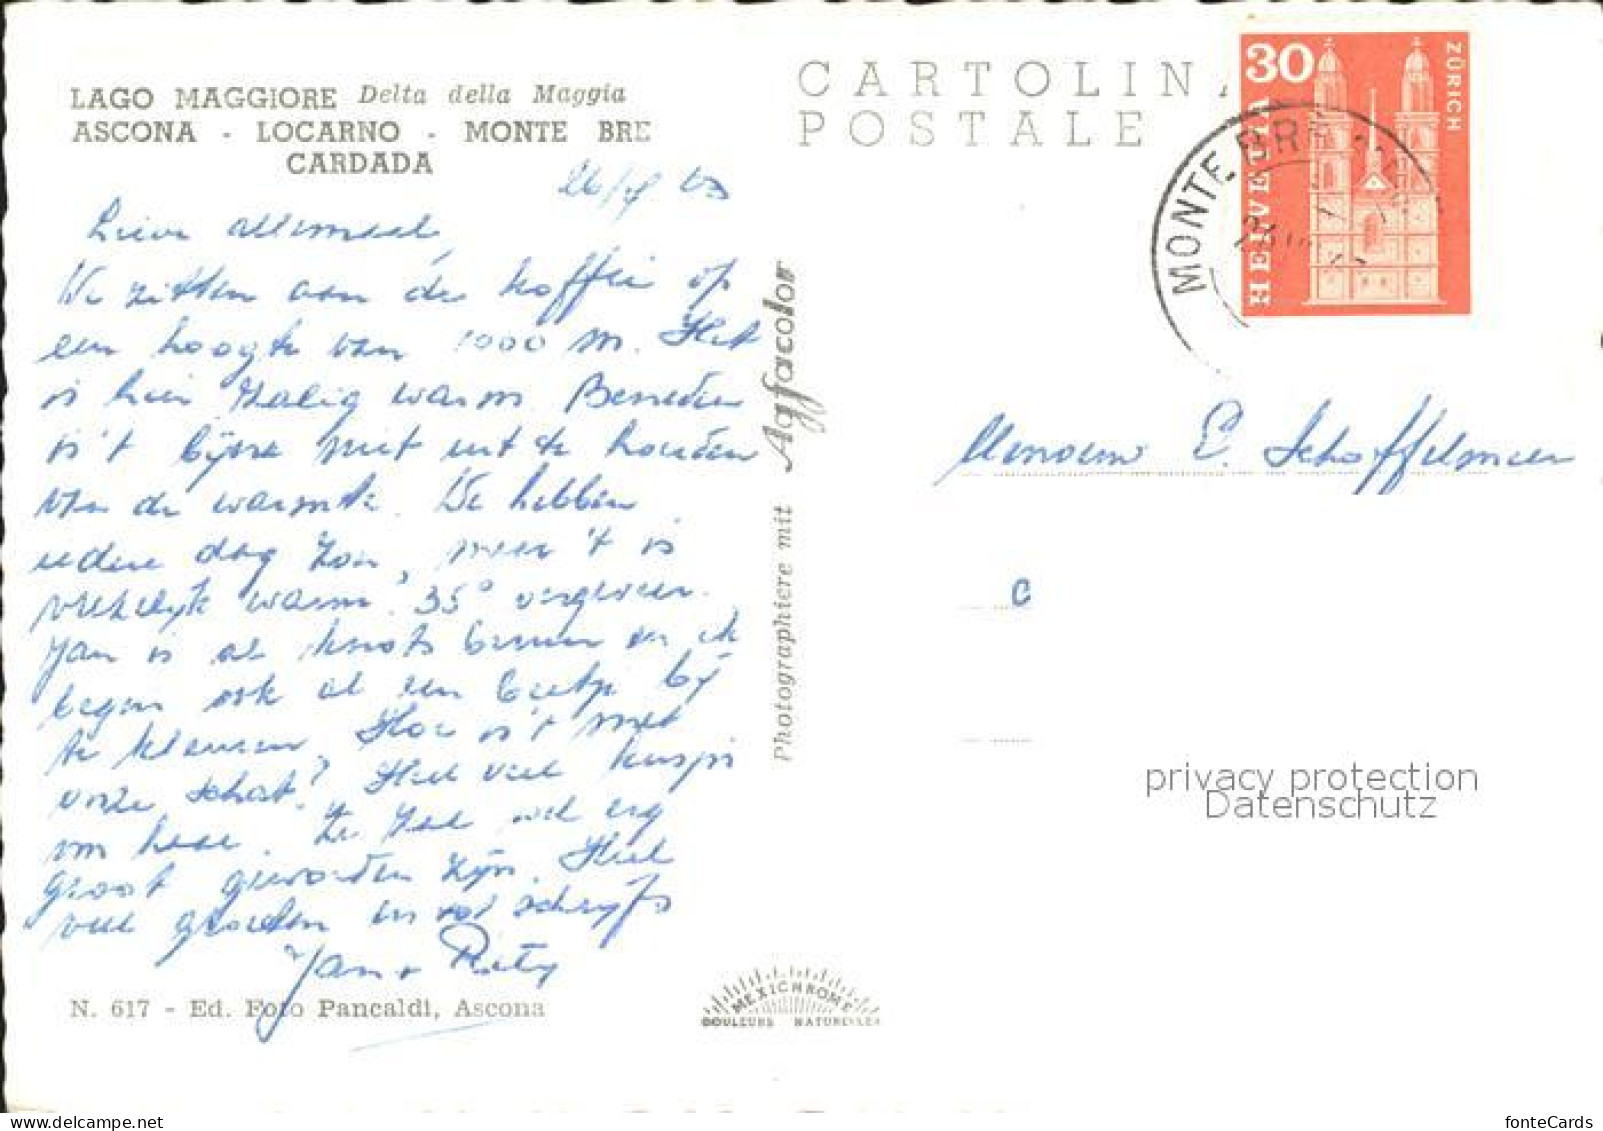 LAGO MAGGIORE Delta della Maggia
ASCONA - LOCARNO - MONTE BRE
CARDADA
Lieve allemaal,
We zitten aan de koffie op
een hoogte van 1000 m. Het
is hier zalig warm. Beneden
is 't bijna niet uit te houden
van de warmte. We hebben
iedere dag zon, maar 't is
vreselijk warm. 35° ongeveer.
Jan is al knots bruin en ik
begin ook al een beetje bij
te kleuren. Hoe is 't met
onze schat? Heel veel kusjes
van haar. Ze zal wel erg
groot geworden zijn. Heel
veel groeten en tot schrijfs
Jan + Rity
N. 617 - Ed. Foto Pancaldi, Ascona
Photographiere mit Agfacolor
MEXICHROME
COULEURS NATURELLES
CARTOLINA
POSTALE
30
HELVETIA
ZÜRICH
MONTE BRÈ
Mevrouw E. Schoffelmeer
privacy protection
Datenschutz
fonteCards